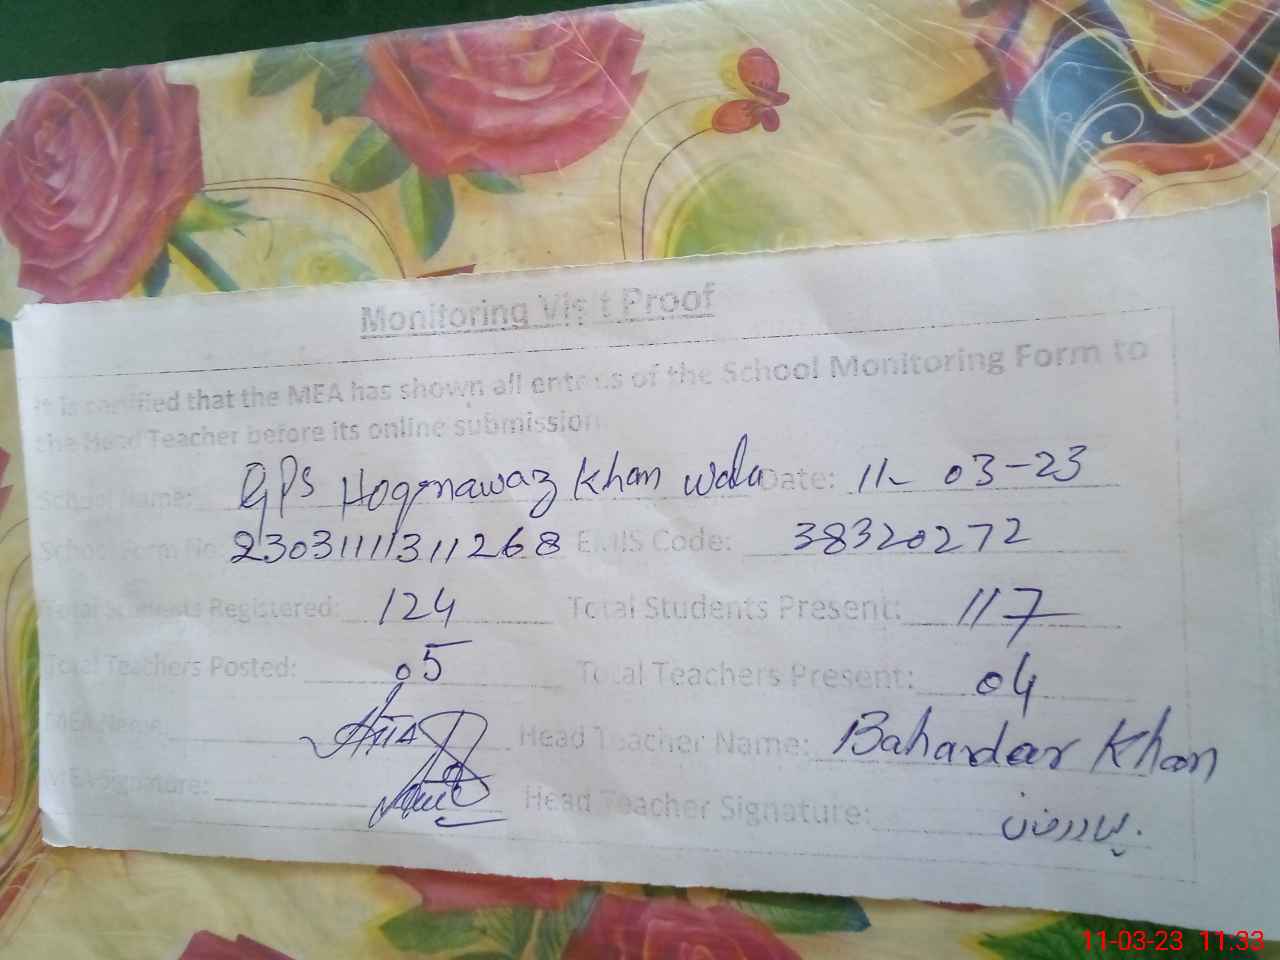 Monitoring Visit Proof
It is certified that the MEA has shown all enteries of the School Monitoring Form to
the Head Teacher before its online submission
School Name: GPS Hoqnawaz Khan wala Date: 11-03-23
School Form No: 2303111131 1268 EMIS Code: 38320272
Total Students Registered: 124 Total Students Present: 117
Total Teachers Posted: 05 Total Teachers Present: 04
MEA Name Head Teacher Name: Bahardar Khan
MEA Signature: Head Teacher Signature:
11-03-23 11:33